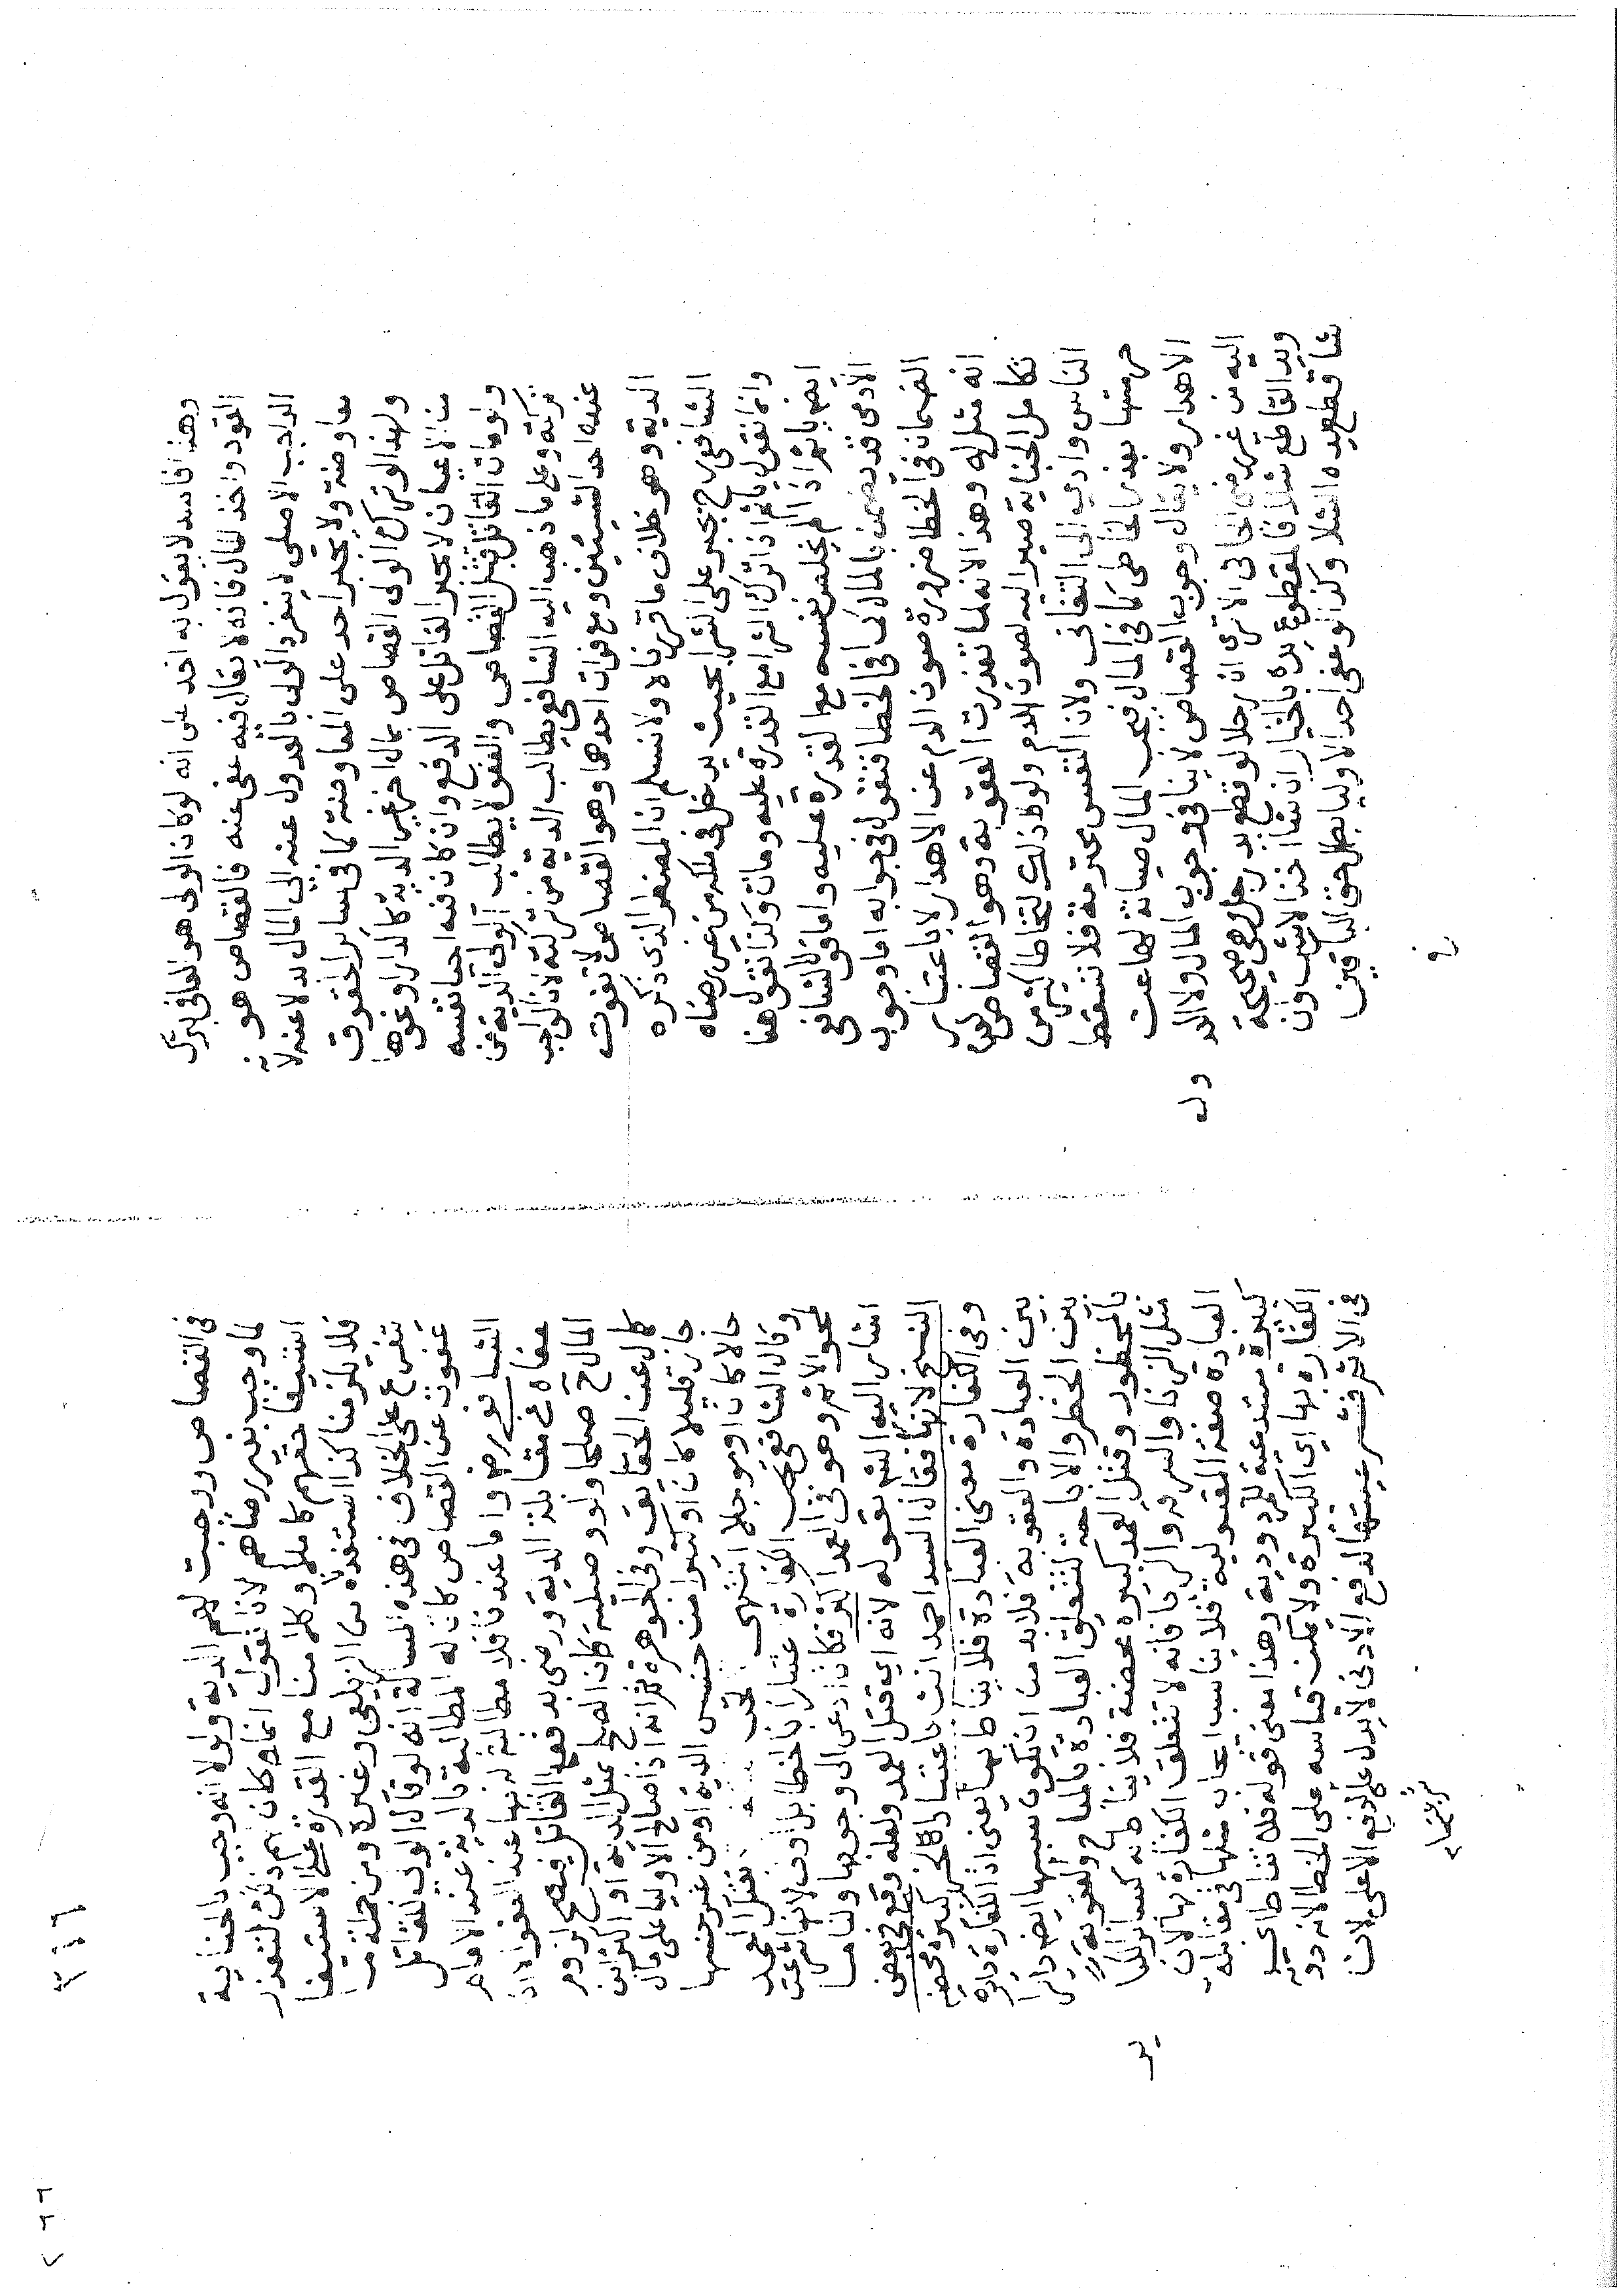 وهذا فاسد لا يقول به احد على انه لو كان الولى هو العافى بترك
القود واخذ المال فانه لا يقال فيه عفى عنه فالقصاص هو
الواجب الاصلى لا ينفرد الولى بالعدول عنه الى المال بدلا عنه لانه
معاوضة ولا يجبر احد على المعاوضة كما فى سائر الحقوق
ولهذا لو ترك الولى القصاص بمال اخر غير الدية كالدار ونحوها
من الاعيان لا يجبر القاتل على الدفع وان كان فيه احيا نفسه
ولو مات القاتل قبل القصاص والعفو لا يطالب الولى الدية من
تركته وعلى ما ذهب اليه الشافعى يطالب الدية من تركته لان الواجب
عنده احد الشيئين ومع فوات احدهما وهو القصاص لا تفوت
الدية وهو خلاف ما قررناه ولا نسلم ان المضطر الذى ذكره
الشافعى رح يجبر على الشرا بحيث يدخل فى ملكه من غير رضاه
وانما نقول ياثم اذا ترك الشرا مع القدرة عليه ومات وكذا نقول هنا
ايضا ياثم اذا لم يخلص نفسه مع القدرة عليه واما قول الشافعى
الآدمى قد يضمن بالمال كما فى الخطا فنقول فى جوابه اما وجوب
الضمان فى الخطا ضرورة صون الدم عن الاهدار لا باعتبار
انه مثل له وهذا لانه لما تعذرت العقوبة وهو القصاص لعدم
تكامل الجناية صير اليه لصون الدم ولولا ذلك لتخاطا كثير من
الناس وادى الى التفانى ولان النفس محترمة فلا تسقط
حرمتها بعذر الخاطى كما فى المال فيجب المال صيانة لها عن
الاهدار ولا يقال وجوب القصاص لا ينافى وجوب المال ولا العدول
اليه من غير رضى الجانى الا ترى ان رجلا لو قطع يد رجل وهى صحيحة
ويد القاطع شلا فالمقطوع يده بالخيار ان شا اخذ الارش وان
شا قطع يده الشلا وكذا لو عفى احد الاوليا بطل حق الباقين
فى
فى القصاص ووجبت لهم الدية ولولا انه وجب بالجناية
لما وجب بغير رضاهم لانا نقول انما كان لهم ذلك لتعذر
استيفا حقهم كاملا وكلامنا مع القدرة على الاستيفا
فلا يلزمنا كذا استفدناه من الزيلعى وغيره ومن جملة ما
تفرع على الخلاف فى هذه المسالة انه لو قال الولى للقاتل
عفوت عن القصاص كان له المطالبة بالدية عند الامام
الشافعى رض واما عندنا فلا مطالبة له بها عند العفو الا اذا
عفاه فى مقابلة الدية ورضى بدفعها القاتل فيصح لزوم
المال صلحا ولو وصلية كان الصلح بمثل الدية او اكثر ان
كل عن الحقايق وفى الجوهرة ثم انه اذا صالح الاوليا على مال
جاز قليلا كان او كثيرا من جنس الدية او من غير جنسها
حالا كان او موجلا انتهى بقتل العمد
وقال الشافعى تجب الكفارة اعتبارا بالخطا بل اولى لانها شرعت
لمحو الاثم وهو فى العمد اكثر فكان ادعى الى وجوبها ولنا ما
اشار اليه الشر بقوله لانه اى قتل العمد ولعله وقع فى بعض
النسخ لانها فقال السد احمد انث باعتبار الخبر كبيرة محضة
وفى الكفارة معنى العبادة فلا يناط بها يعنى ان الكفارة دايرة
بين العبادة والعقوبة فلا بد من ان يكون سببها ايضا دايرا
بين الحظر والاباحة لتتعلق العبادة بالمباح والعقوبة
بالمحظور وقتل العمد كبيرة محضة فلا يناط به كسائر الكبا
مثل الزنا والسرقة والربا فانه لا تتعلق الكفارة بها لان
العبادة صفة المقبولية فلا يناسب ايجاب مثلها فى مقابلة
كبيرة مستدعية للمردودية وهذا معنى قوله فلا تناط اى
الكفارة بها اى الكبيرة ولا يمكن قياسه على الخطا لانه دونه
فى الاثم فشرعيتها لدفع الادنى لا يدل على دفع الاعلى لان